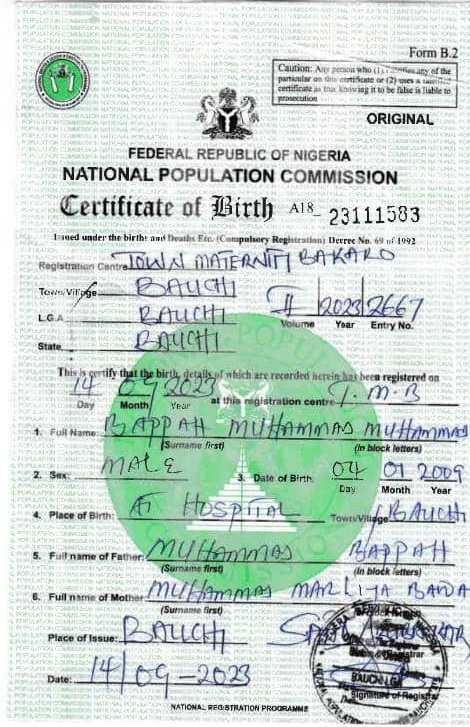 Form B.2
Caution: Any person who (1) falsifies any of the
particular on this certificate or (2) uses a falsified
certificate as true knowing it to be false is liable to
prosecution
ORIGINAL
FEDERAL REPUBLIC OF NIGERIA
NATIONAL POPULATION COMMISSION
Certificate of Birth A18_ 23111583
Issued under the births and Deaths Etc. (Compulsory Registration) Decree No. 69 of 1992
Registration Centre TOWN MATERNITY BAKARO
Town/Village BAUCHI
II 2023 2667
L.G.A. BAUCHI
Volume Year Entry No.
State BAUCHI
This is certify that the birth, details of which are recorded herein has been registered on
14 09 2023 at this registration centre T.M.B
Day Month Year
1. Full Name: BAPPAH MUHAMMAD MUHAMMAD
(Surname first) (In block letters)
2. Sex: MALE 3. Date of Birth: 04 01 2009
Day Month Year
4. Place of Birth: AT HOSPITAL Town/Village BAUCHI
5. Full name of Father: MUHAMMAD BAPPAH
(Surname first) (In block letters)
6. Full name of Mother: MUHAMMAD MARLIYA
(Surname first)
Place of Issue: BAUCHI
Registrar
BAUCHI LGA
Date: 14/09-2023
Signature of Registrar
NATIONAL REGISTRATION PROGRAMME